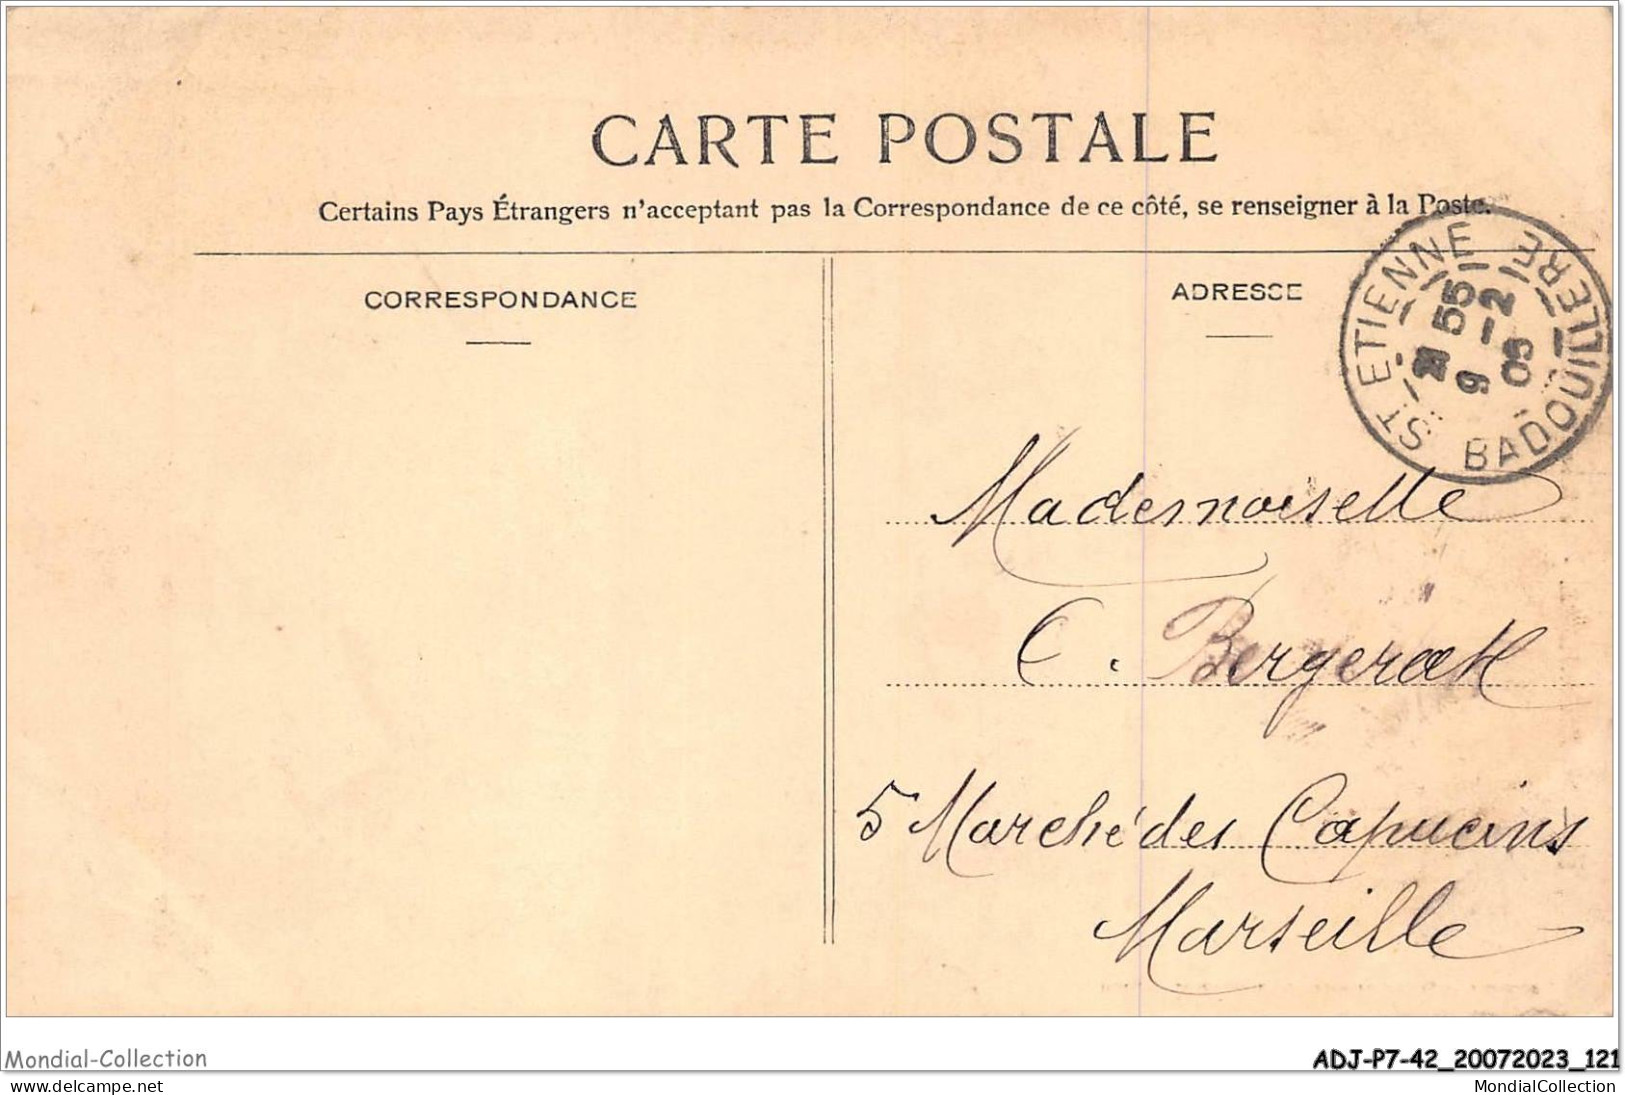 CARTE POSTALE
Certains Pays Étrangers n'acceptent pas la Correspondance de ce côté, se renseigner à la Poste.
CORRESPONDANCE
ADRESSE
ST ETIENNE BADOUILLERE
55
9 -2
05
Mademoiselle
C. Bergerat
5 Marché des Capucins
Marseille
Mondial-Collection
ADJ-P7-42_20072023_121
www.delcampe.net
MondialCollection